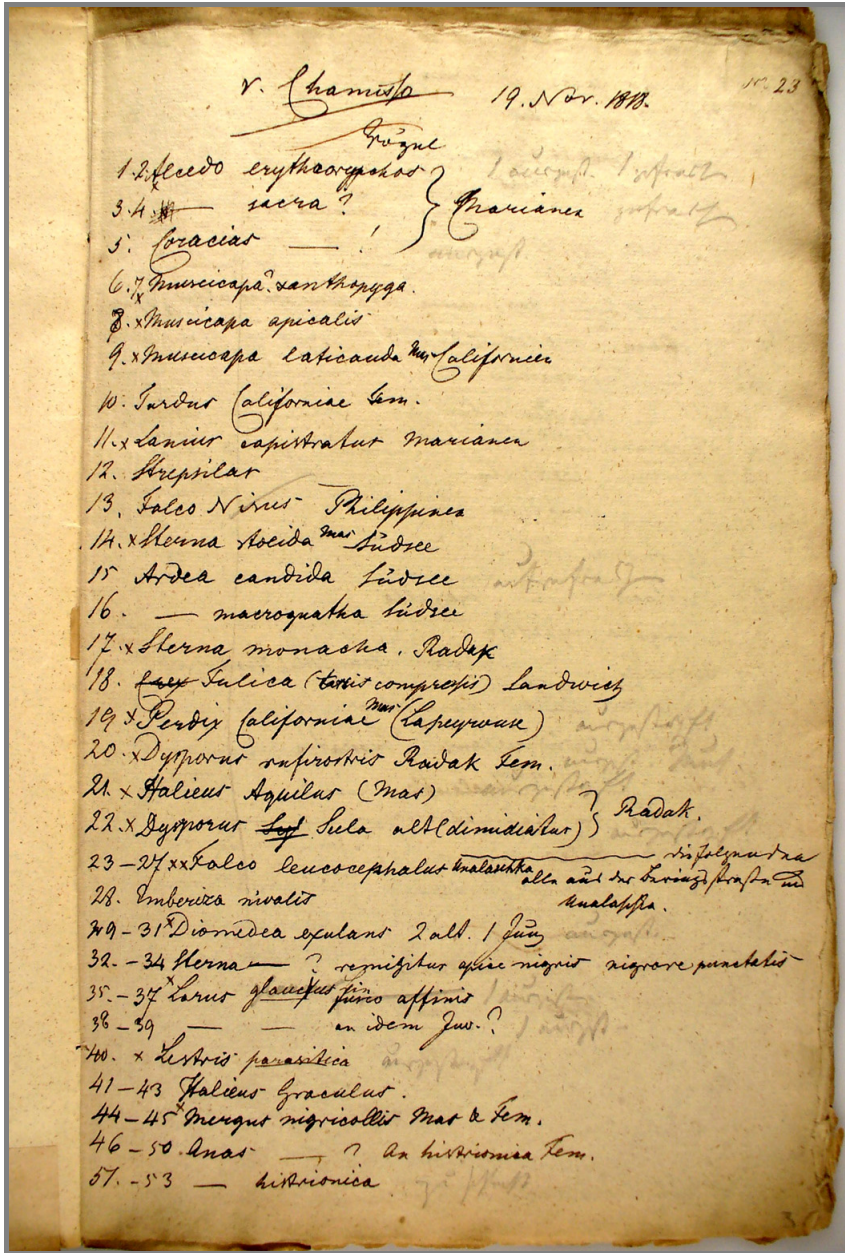 v. Chamisso 19. Nov. 1818. 23
Vögel
1. 2. Alcedo erythrorynchos
3. 4. — sacra? } Marianen
5. Coracias — !
6. 7. x Muscicapa? xanthopyga.
8. x Muscicapa apicalis
9. x Muscicapa laticauda Mas Californien
10. Turdus Californiae Fem.
11. x Lanius capistratus Marianen
12. Strepsilas
13. Falco Nisus Philippinen
14. x Sterna stolida Mas Südsee
15 Ardea candida Südsee
16. — macrognatha Südsee
17. x Sterna monacha. Radak
18. Crex Fulica (tarsis compressis) Sandwich
19 x Perdix Californiae Mas (Lapeyrouse)
20. x Dysporus rufirostris Radak Fem.
21. x Halieus Aquilus (Mas)
22. x Dysporus Sula alt (dimidiatus) } Radak.
23 – 27 xx Falco leucocephalus Unalaschka — die folgenden
alle aus der Beringsstraße und
28. Emberiza nivalis Unalaschka.
29 – 31 x Diomedea exulans 2 alt. 1 Juv
32. – 34 Sterna — ? remigibus apice nigris nigrore punctatis
35. – 37 x Larus glaucus fusco affinis
38 – 39 — — an idem Juv. ?
40. x Lestris parasitica
41 – 43 Halieus Graculus.
44 – 45 x Mergus nigricollis Mas & Fem.
46 – 50. Anas — ? An histrionica Fem.
51. – 53 — histrionica
3